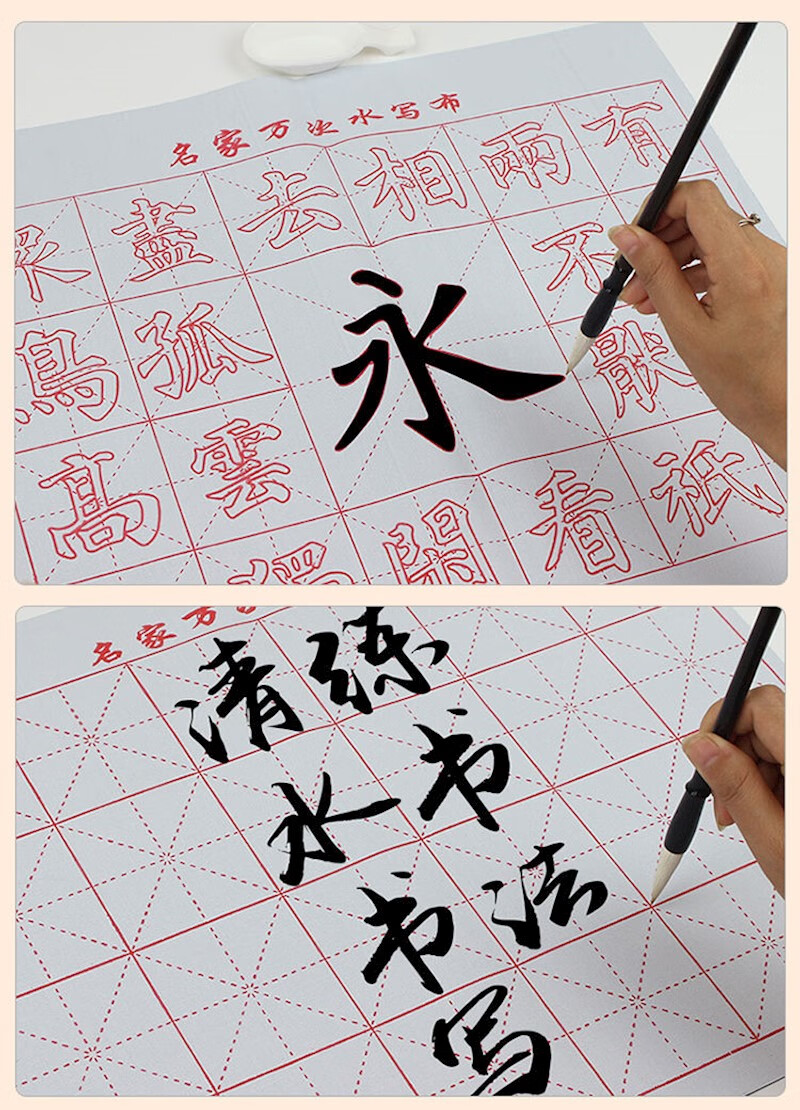 名家万次水写布
鳥高
盡孤雲獨
去閑
永
相看
兩不厭祇
有
名家万
练书法
清水书写